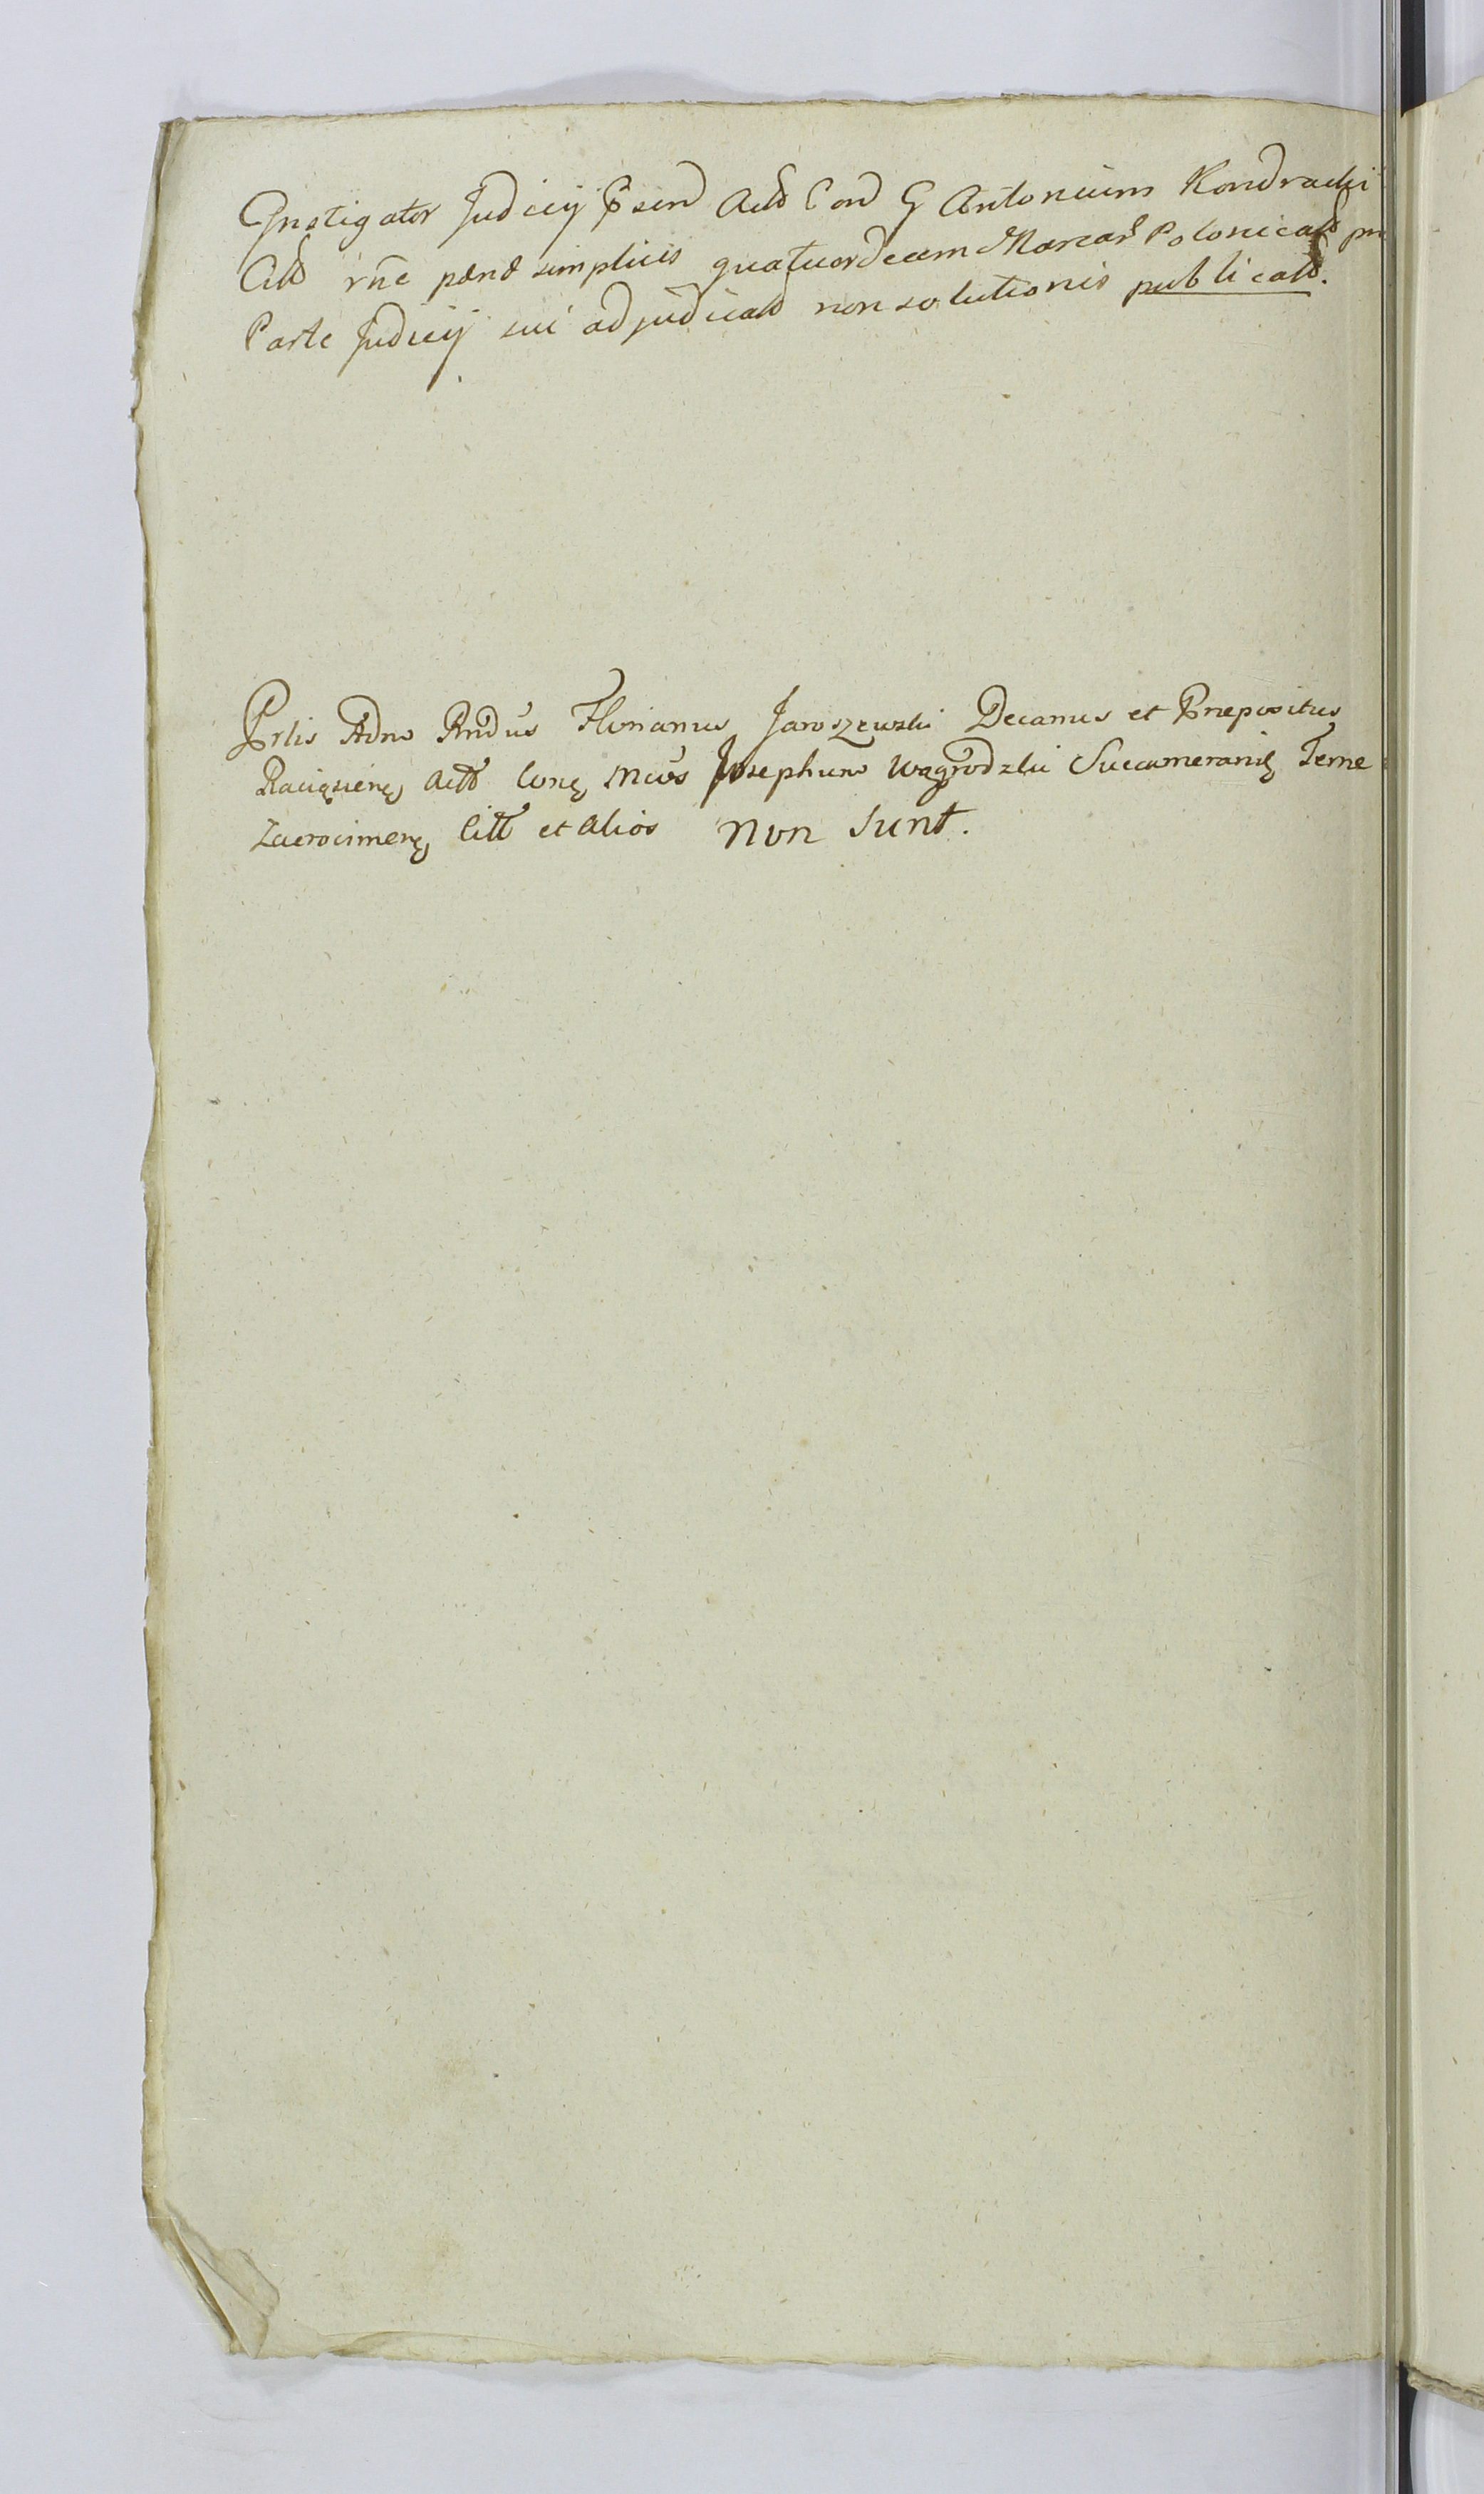 Instigator Judicij Psend Actt Cond G Antonium Kondracki
Citt rñe pænæ simplicis quatuordecem Marcar Polonicatt
Parte Judicij sui adjudicatt non solutionis publicatt.
Prlis Adm Rndus Florianus Jaroszewski Decanus et Præpositus
Raciąsień Actt Con Mcos Josephum Wągrodzki Succamerarid Terrae
Zacrocimen Citt et Alios Non Sunt.